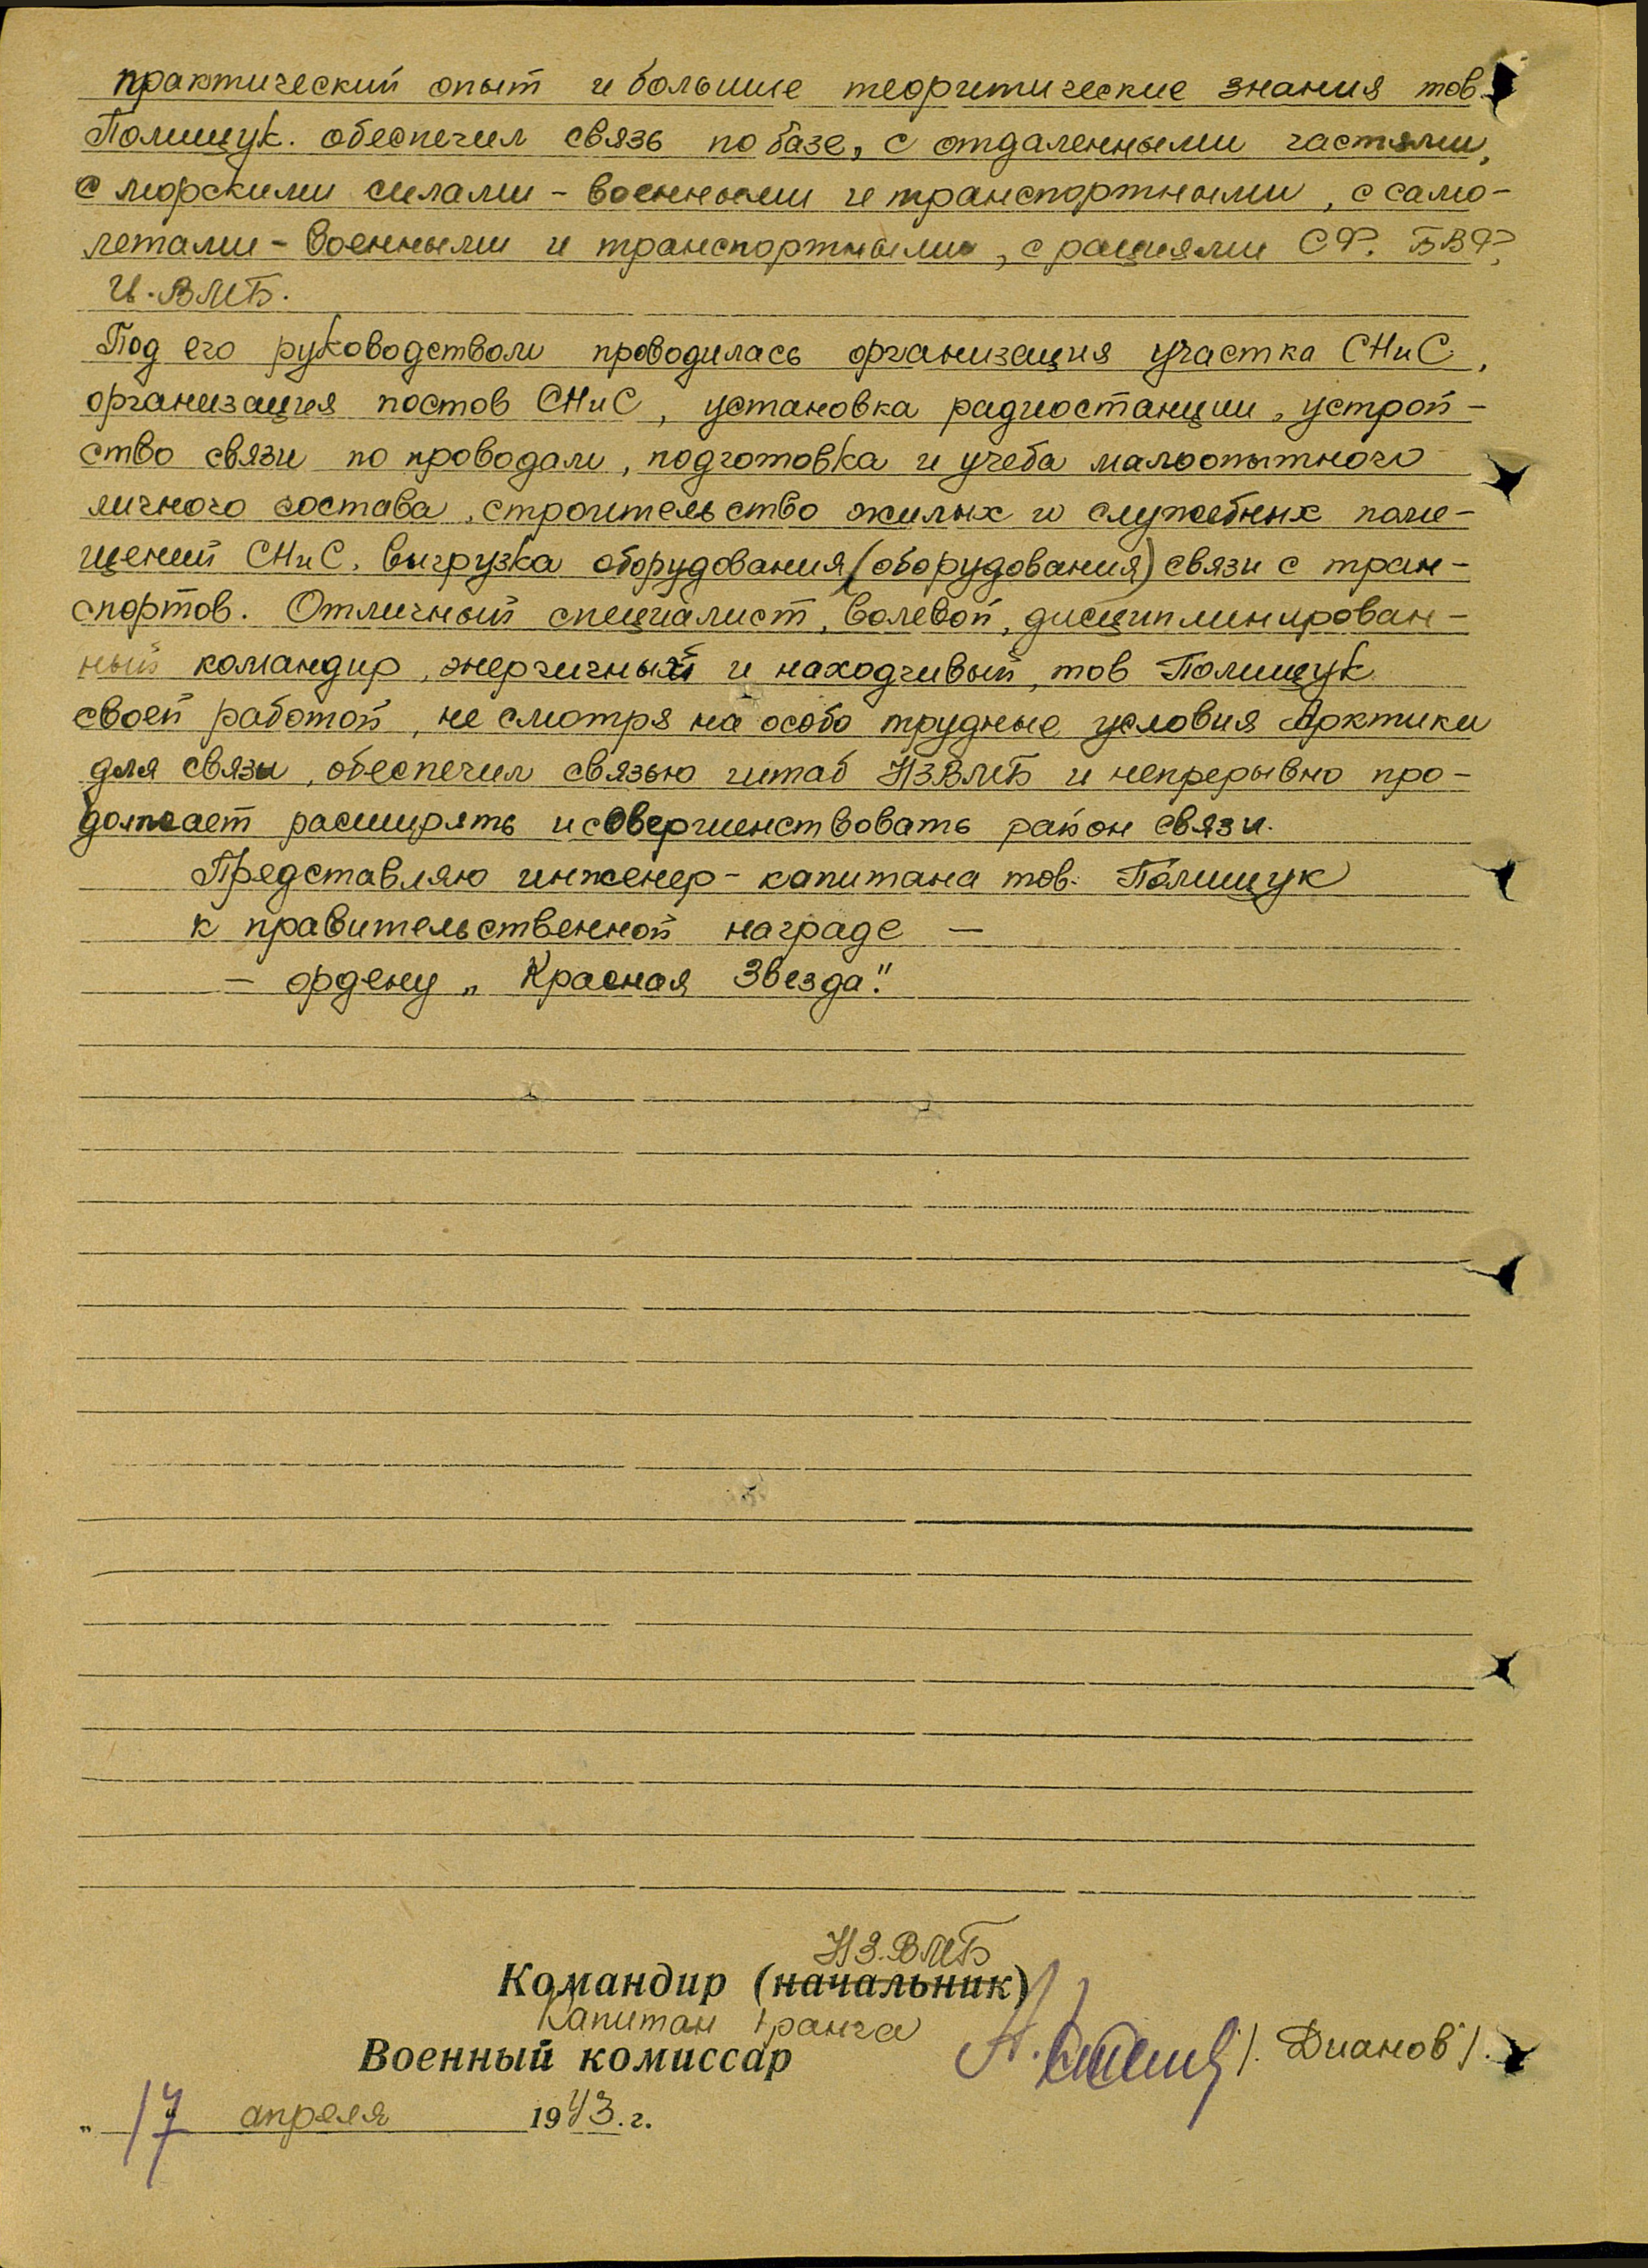 практический опыт и большие теоритические знания тов.
Полищук. обеспечил связь по базе, с отдаленными частями,
с морскими силами - военными и транспортными, с само-
летами - военными и транспортными, с рациями СФ. БВФ,
И. ВМБ.
Под его руководством проводилась организация участка СНиС,
организация постов СНиС, установка радиостанции, устрой-
ство связи по проводам, подготовка и учеба малоопытного
личного состава, строительство жилых и служебных поме-
щений СНиС. Выгрузка оборудования (оборудования) связи с тран-
спортов. Отличный специалист, волевой, дисциплинирован-
ный командир, энергичный и находчивый, тов Полищук
своей работой, не смотря на особо трудные условия Арктики
для связи, обеспечил связью штаб НЗВМБ и непрерывно про-
должает расширять и совершенствовать район связи.
Представляю инженер - капитана тов. Полищук
к правительственной награде —
— ордену „Красная Звезда".
НЗ. ВМБ
Командир (начальник)
Капитан 1 ранга
Военный комиссар /. Дианов /.
„17" апреля 1943. г.